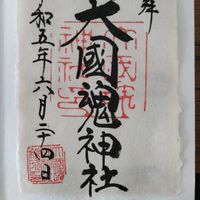 拝
大國魂神社
和五年六月二十四日